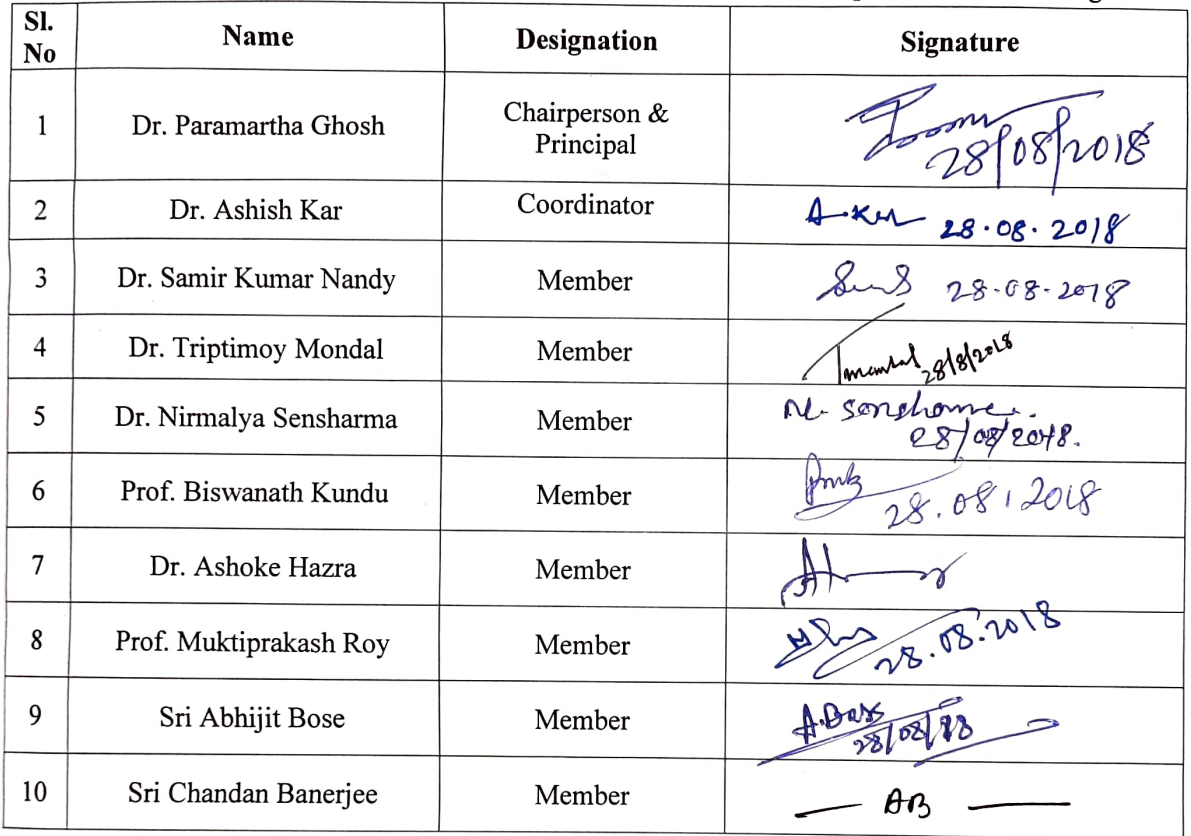 Sl. No Name Designation Signature
1 Dr. Paramartha Ghosh Chairperson & Principal 28/08/2018
2 Dr. Ashish Kar Coordinator A.Kar 28.08.2018
3 Dr. Samir Kumar Nandy Member 28.08.2018
4 Dr. Triptimoy Mondal Member Tmondal 28/8/2018
5 Dr. Nirmalya Sensharma Member N. Sensharma 28/08/2018.
6 Prof. Biswanath Kundu Member 28.08.2018
7 Dr. Ashoke Hazra Member
8 Prof. Muktiprakash Roy Member 28.08.2018
9 Sri Abhijit Bose Member A.Bose 28/08/18
10 Sri Chandan Banerjee Member — AB —